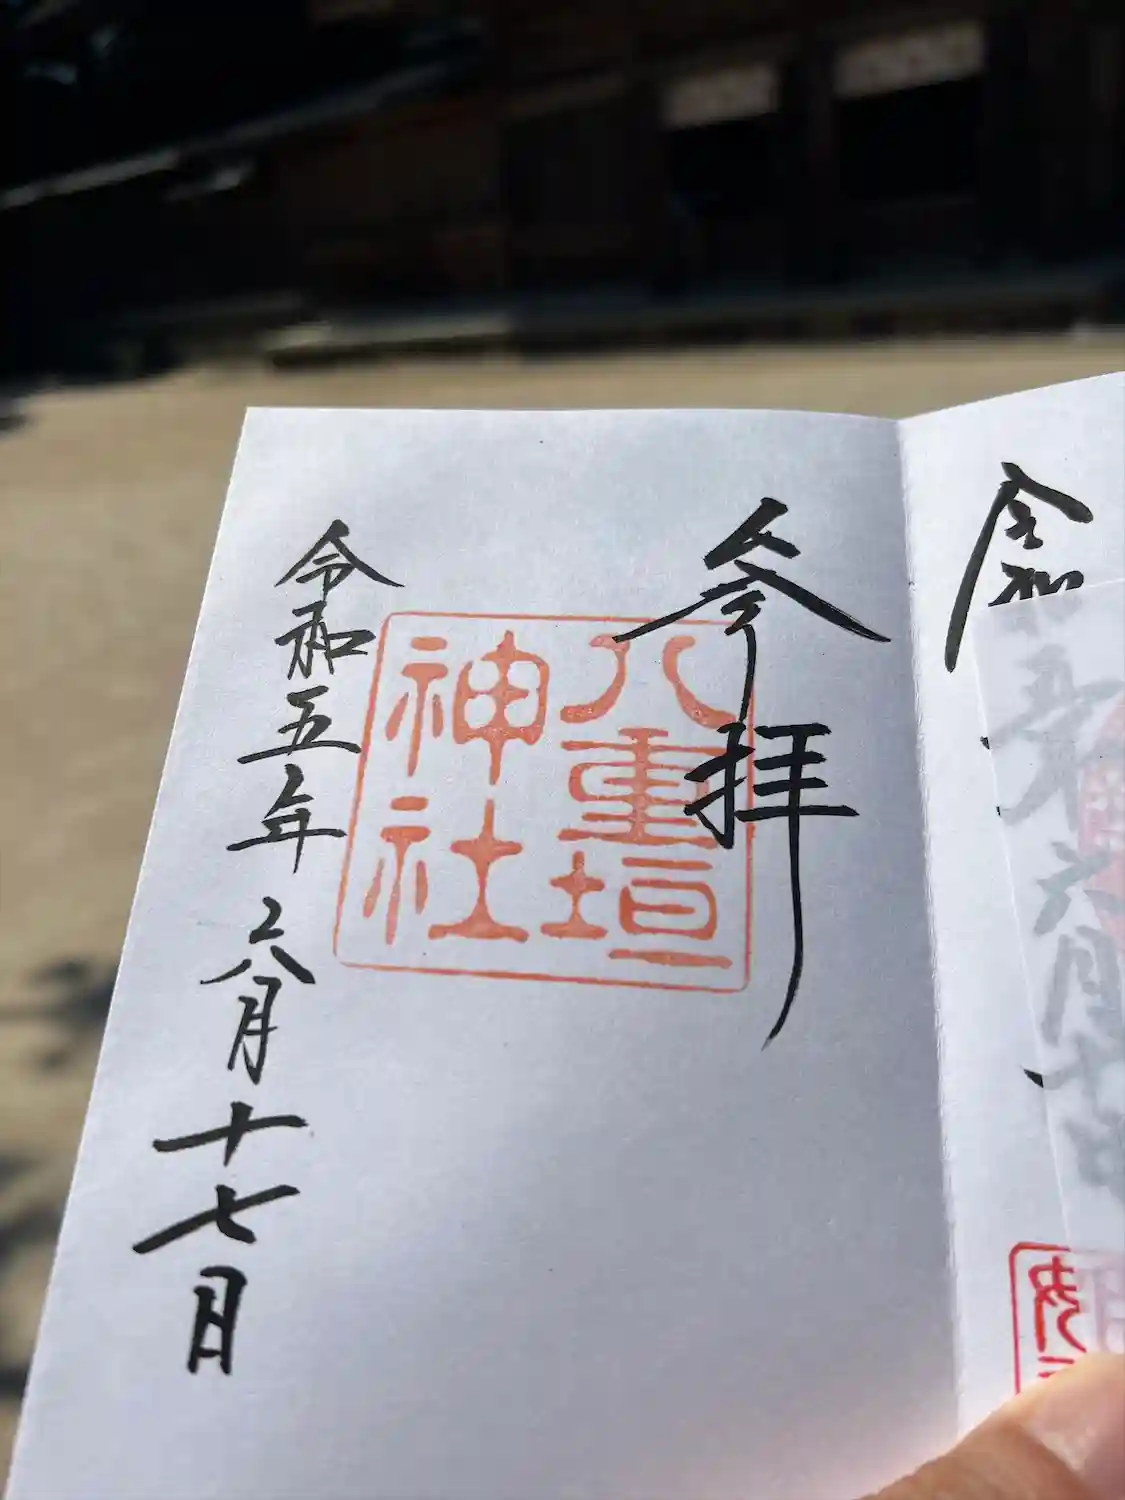 令和
六月十
参拝
八重垣
神社
令和五年六月十七日